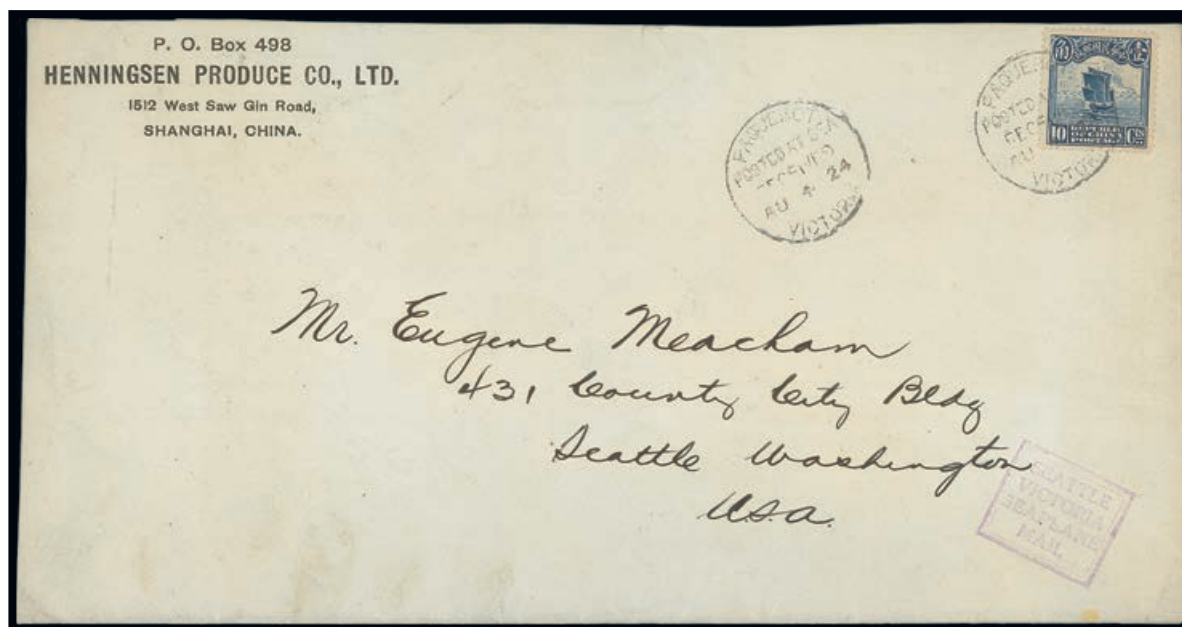 P. O. Box 498
HENNINGSEN PRODUCE CO., LTD.
1512 West Saw Gin Road,
SHANGHAI, CHINA.
PAQUEBOT
POSTED AT
AU 4 24
VICTORIA
POSTED
AU
10 REPUBLIC Cts
OF CHINA
POSTAGE
Mr. Eugene Meacham
431 County City Bldg
Seattle Washington
U.S.a.
SEATTLE
VICTORIA
SEAPLANE
MAIL